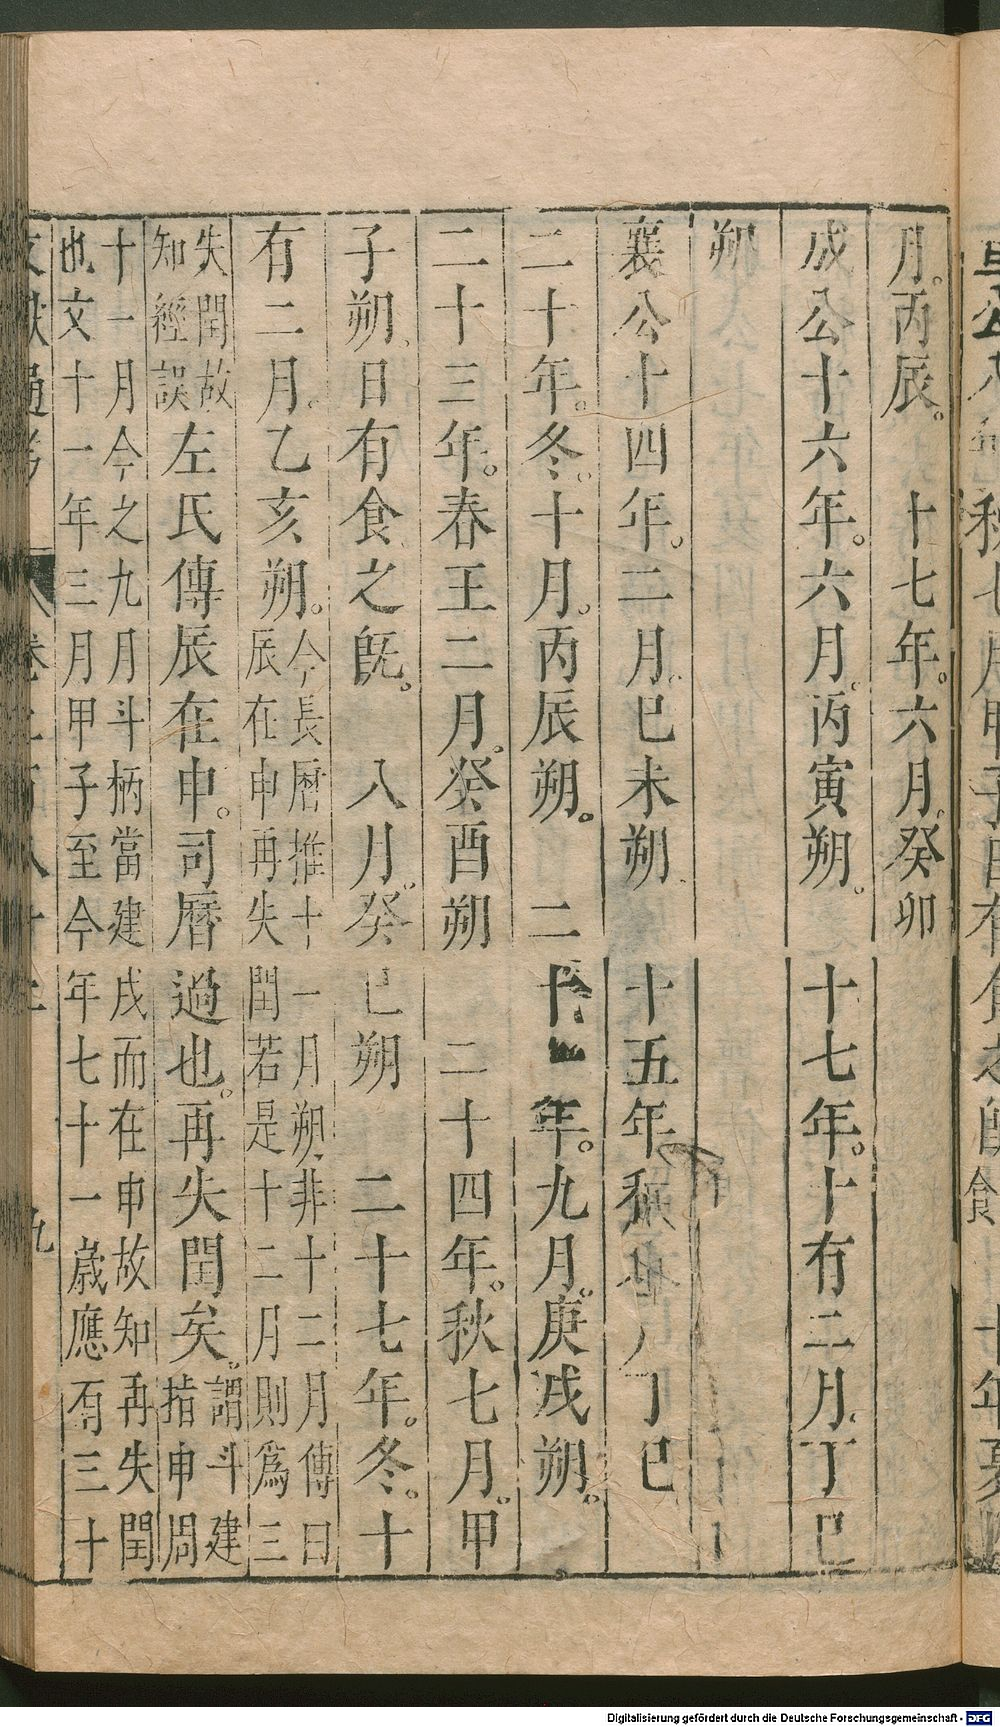 月。丙辰。　十七年。六月。癸卯
成公十六年。六月。丙寅朔。　十七年。十有二月。丁巳
朔
襄公十四年。二月。巳未朔　十五年秋八丁巳
二十年。冬。十月。丙辰朔。　二十一年。九月。庚戌朔。
二十三年。春王二月。癸酉朔　二十四年。秋七月。甲
子朔日有食之旣。　八月。癸巳朔　二十七年。冬。十
有二月。乙亥朔。今長曆推十一月朔非十二月傳曰
辰在申再失閏若是十二月則爲三
失閏故
知經誤左氏傳辰在申。司曆過也。再失閏矣。謂斗建
指申周
十一月今之九月斗柄當建戌而在申故知再失閏
也文十一年三月甲子至今年七十一歲應有三十
文獻通考　卷二百八十二　九
秋七月甲子日有食之旣
Digitalisierung gefördert durch die Deutsche Forschungsgemeinschaft - DFG